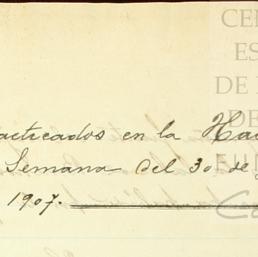 CEN
ES
DE
DE
acticados en la Ha
Semana del 30 de
1907.